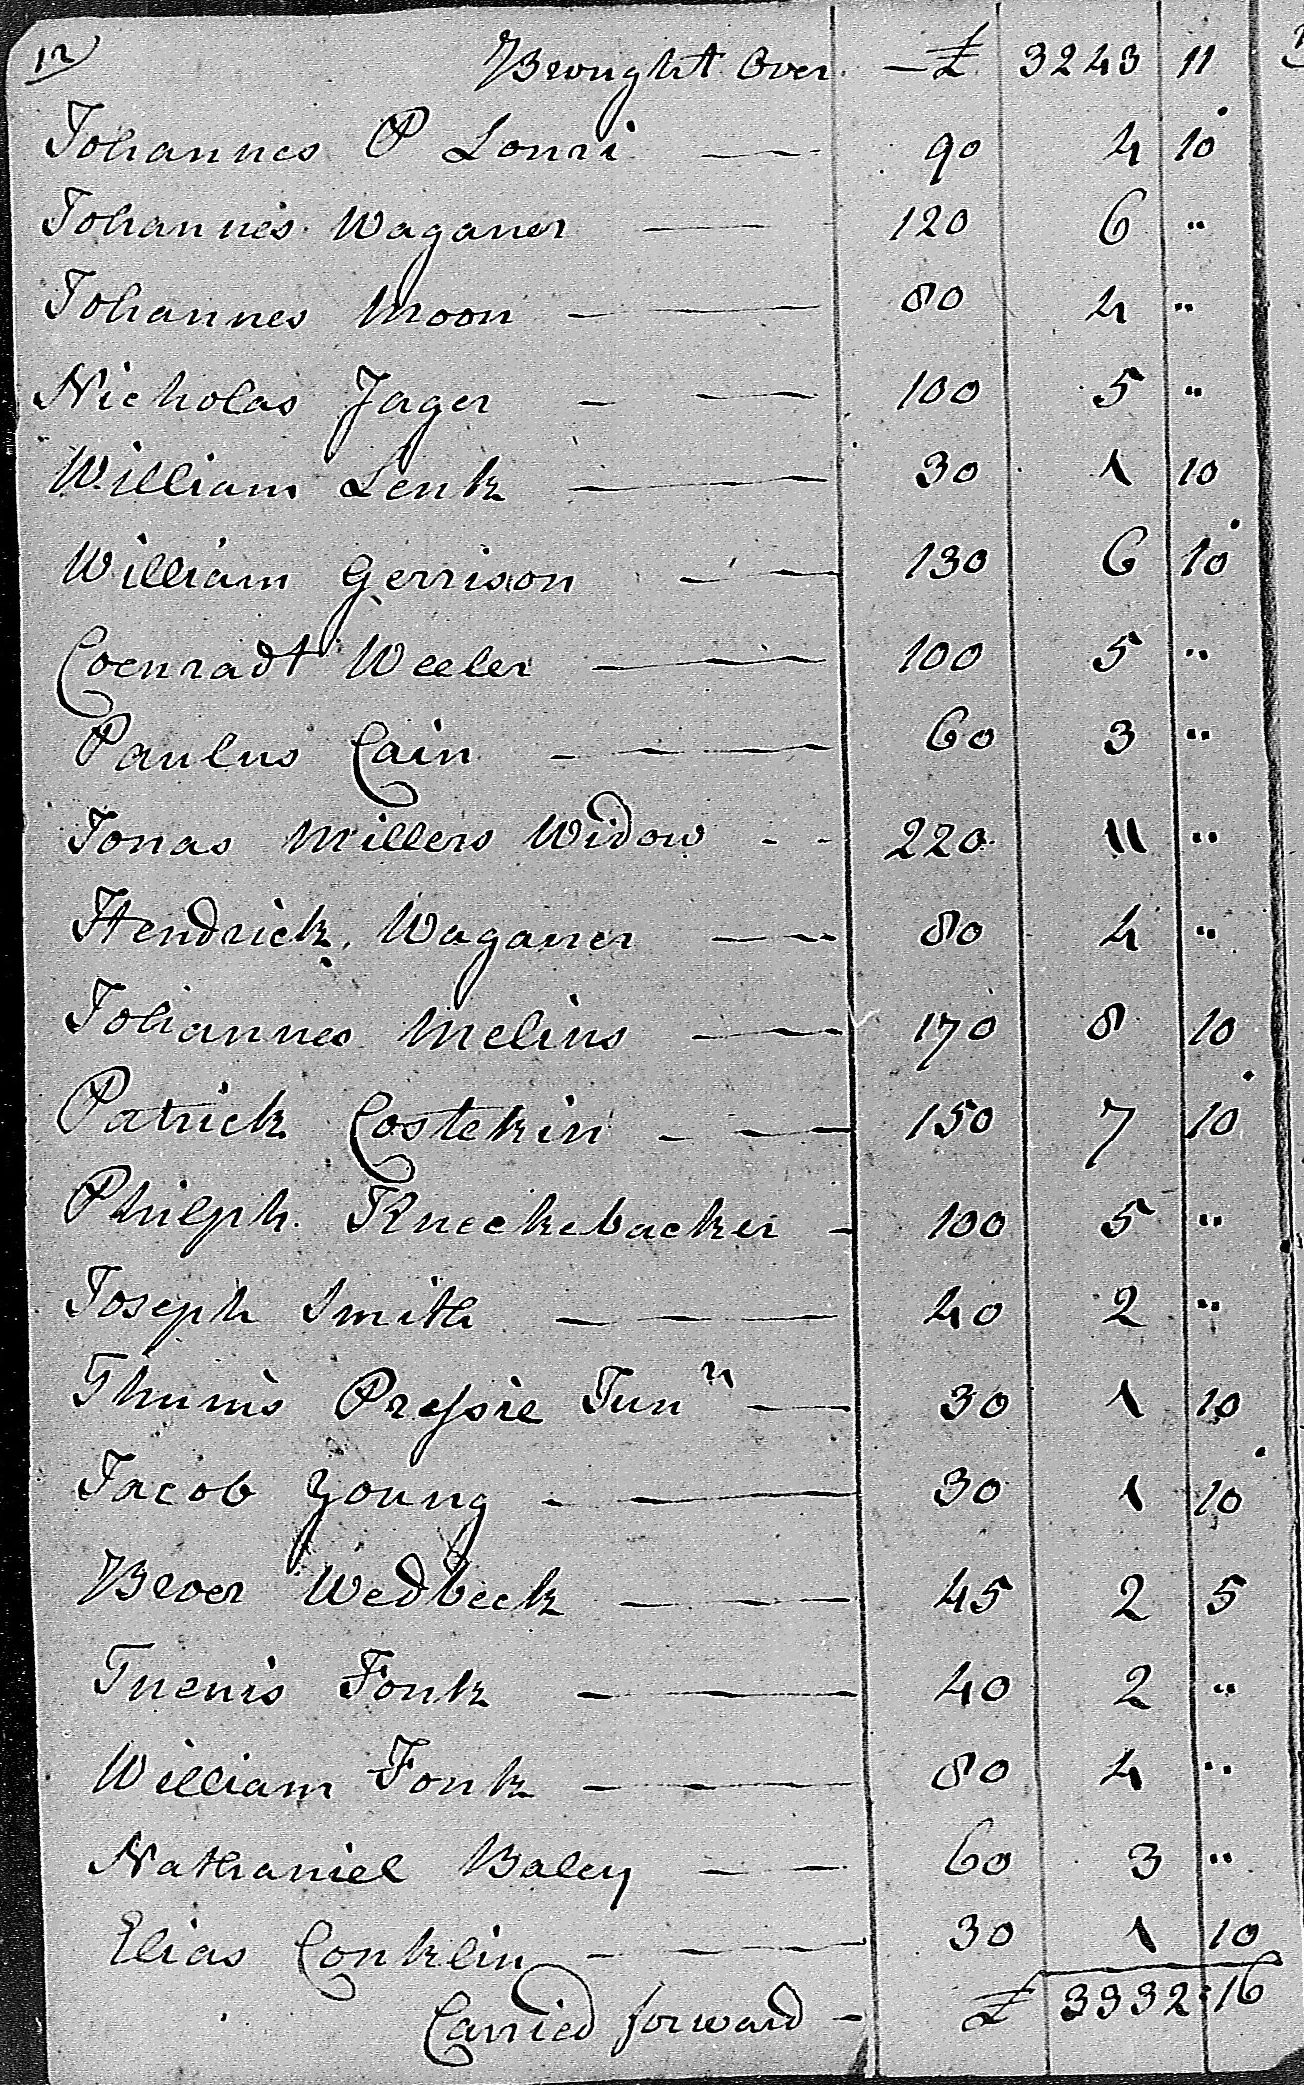 12 Brought Over — £ 3243 11
Johannes P Louri — 90 4 10
Johannes Waganer — 120 6 "
Johannes Moon — 80 4 "
Nicholas Jager — 100 5 "
William Lenk — 30 1 10
William Gerrison — 130 6 10
Coenradt Weeler — 100 5 "
Paulus Cain — 60 3 "
Jonas Millers Widow - - 220 11 "
Hendrick Waganer — 80 4 "
Johannes Melius — 170 8 10
Patrick Costekin — 150 7 10
Philph Kneckebacker - 100 5 "
Joseph Smith — 40 2 "
Thunis Pressie Junr — 30 1 10
Jacob Young — 30 1 10
Bever Wedbeck — 45 2 5
Tuenis Fonk — 40 2 "
William Fonk — 80 4 "
Nathaniel Baley — 60 3 "
Elias Conklin — 30 1 10
Carried forward — £ 3332:16